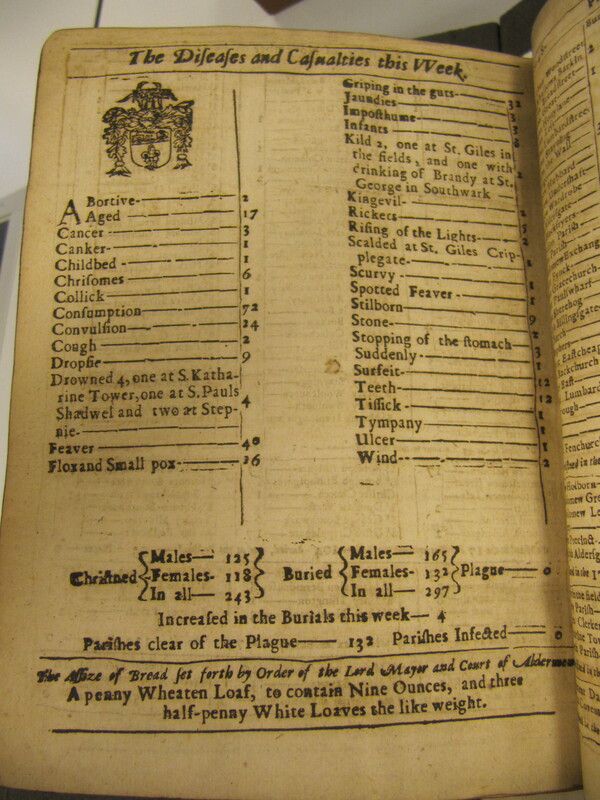 The Diſeaſes and Caſualties this Week.
ABortive- 2
Aged 17
Cancer 3
Canker- 1
Childbed 1
Chriſomes 6
Collick 1
Conſumption 72
Convulſion 24
Cough 2
Dropſie 9
Drowned 4, one at S. Katha-
rine Tower, one at S. Pauls
Shadwel and two at Step- 4
nie-
Feaver 40
Flox and Small pox- 16
Griping in the guts- 32
Jaundies
Impoſthume
Infants
Kild 2, one at St. Giles in
the fields, and one with
drinking of Brandy at St.
George in Southwark
Kingevil-
Rickets
Riſing of the Lights-
Scalded at St. Giles Crip-
plegate- 1
Scurvy 1
Spotted Feaver - 1
Stilborn 9
Stone- 2
Stopping of the ſtomach- 3
Suddenly- 1
Surfeit- 12
Teeth- 12
Tiſſick- 1
Tympany 1
Ulcer 1
Wind- 2
Chriſtned { Males— 125 Females- 118 In all— 243 } Buried { Males— 165 Females- 132 In all— 297 } Plague— 0
Increaſed in the Burials this week— 4
Pariſhes clear of the Plague— 132 Pariſhes Infected— 0
The Aſſize of Bread ſet forth by Order of the Lord Mayor and Court of Aldermen
A penny Wheaten Loaf, to contain Nine Ounces, and three
half-penny White Loaves the like weight.